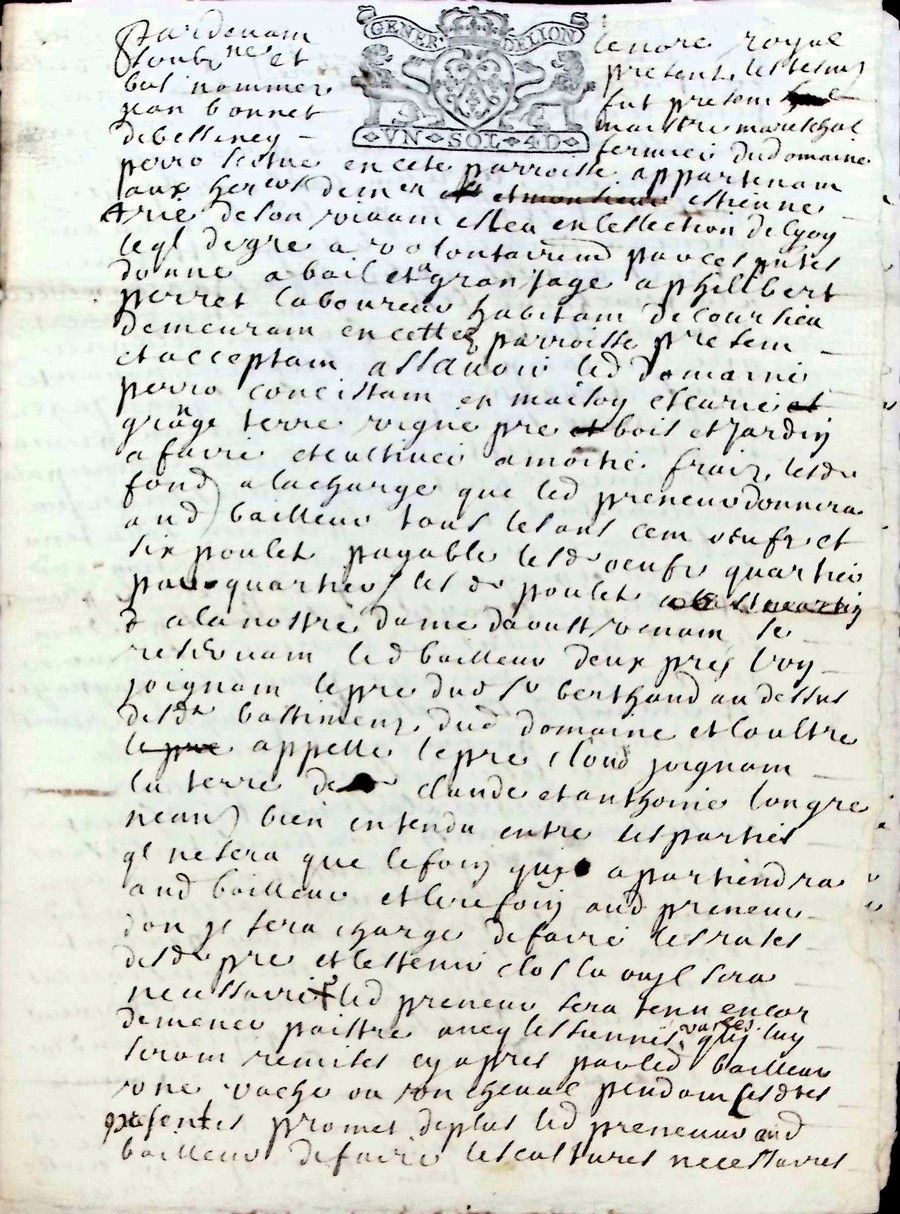 GENER DELION
VN SOL 4D
Pardevant le nore royal
soubne et presents les tesm
bas nommes fut present
jean bonnet maistre mareschal
de besseney fermier du domaine
perro scitue en cete parroisse appartenant
aux her et monsieur estienne
de son vivant esleu en lellection de lyon
leql de gre a volontairemt par ces pntes
donne a bail et a grangage a philibert
perret laboureur habitant de coursieu
demeurant en cette parroisse present
et acceptant assavoir led domaine
perro concistant en maison escurie et
grange terre vigne pre et bois et jardin
a faire et cultiver a moitie fraiz lesd
fond a la charge que led preneur donnera
aud bailleur tous les ans cent oeufz et
six poulet payable lesd oeufz quartier
par quartier lesd poulet a la st martin
a la nostre dame daoust venant se
reservant led bailleur deux prez lun
joignant le pre dud sr berthaud au dessus
desd bastimens dud domaine et laultre
le pre appelle le pre cloud joignant
la terre de claude et anthoine longre
neau bien entendu entre les parties
ql ne sera que le foin qui apartiendra
aud bailleur et le refoin aud preneur
don jl sera charge de faire les rases
desd pre et les tenir clos la ou jl sera
necessaire led preneur sera tenu encor
de mener paistre avecq les siennes vaches quj luy
seront remises cy apres par led bailleur
une vache ou son cheval pendant lesdtes
presentes promet de plus led preneur aud
bailleur de faire les cultures necessaires